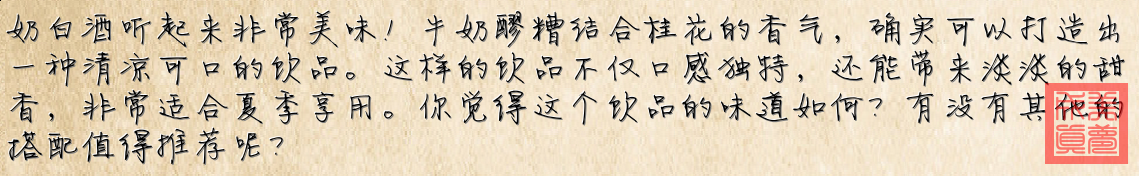 奶白酒听起来非常美味！牛奶醪糟结合桂花的香气，确实可以打造出
一种清凉可口的饮品。这样的饮品不仅口感独特，还能带来淡淡的甜
香，非常适合夏季享用。你觉得这个饮品的味道如何？有没有其他的
搭配值得推荐呢？